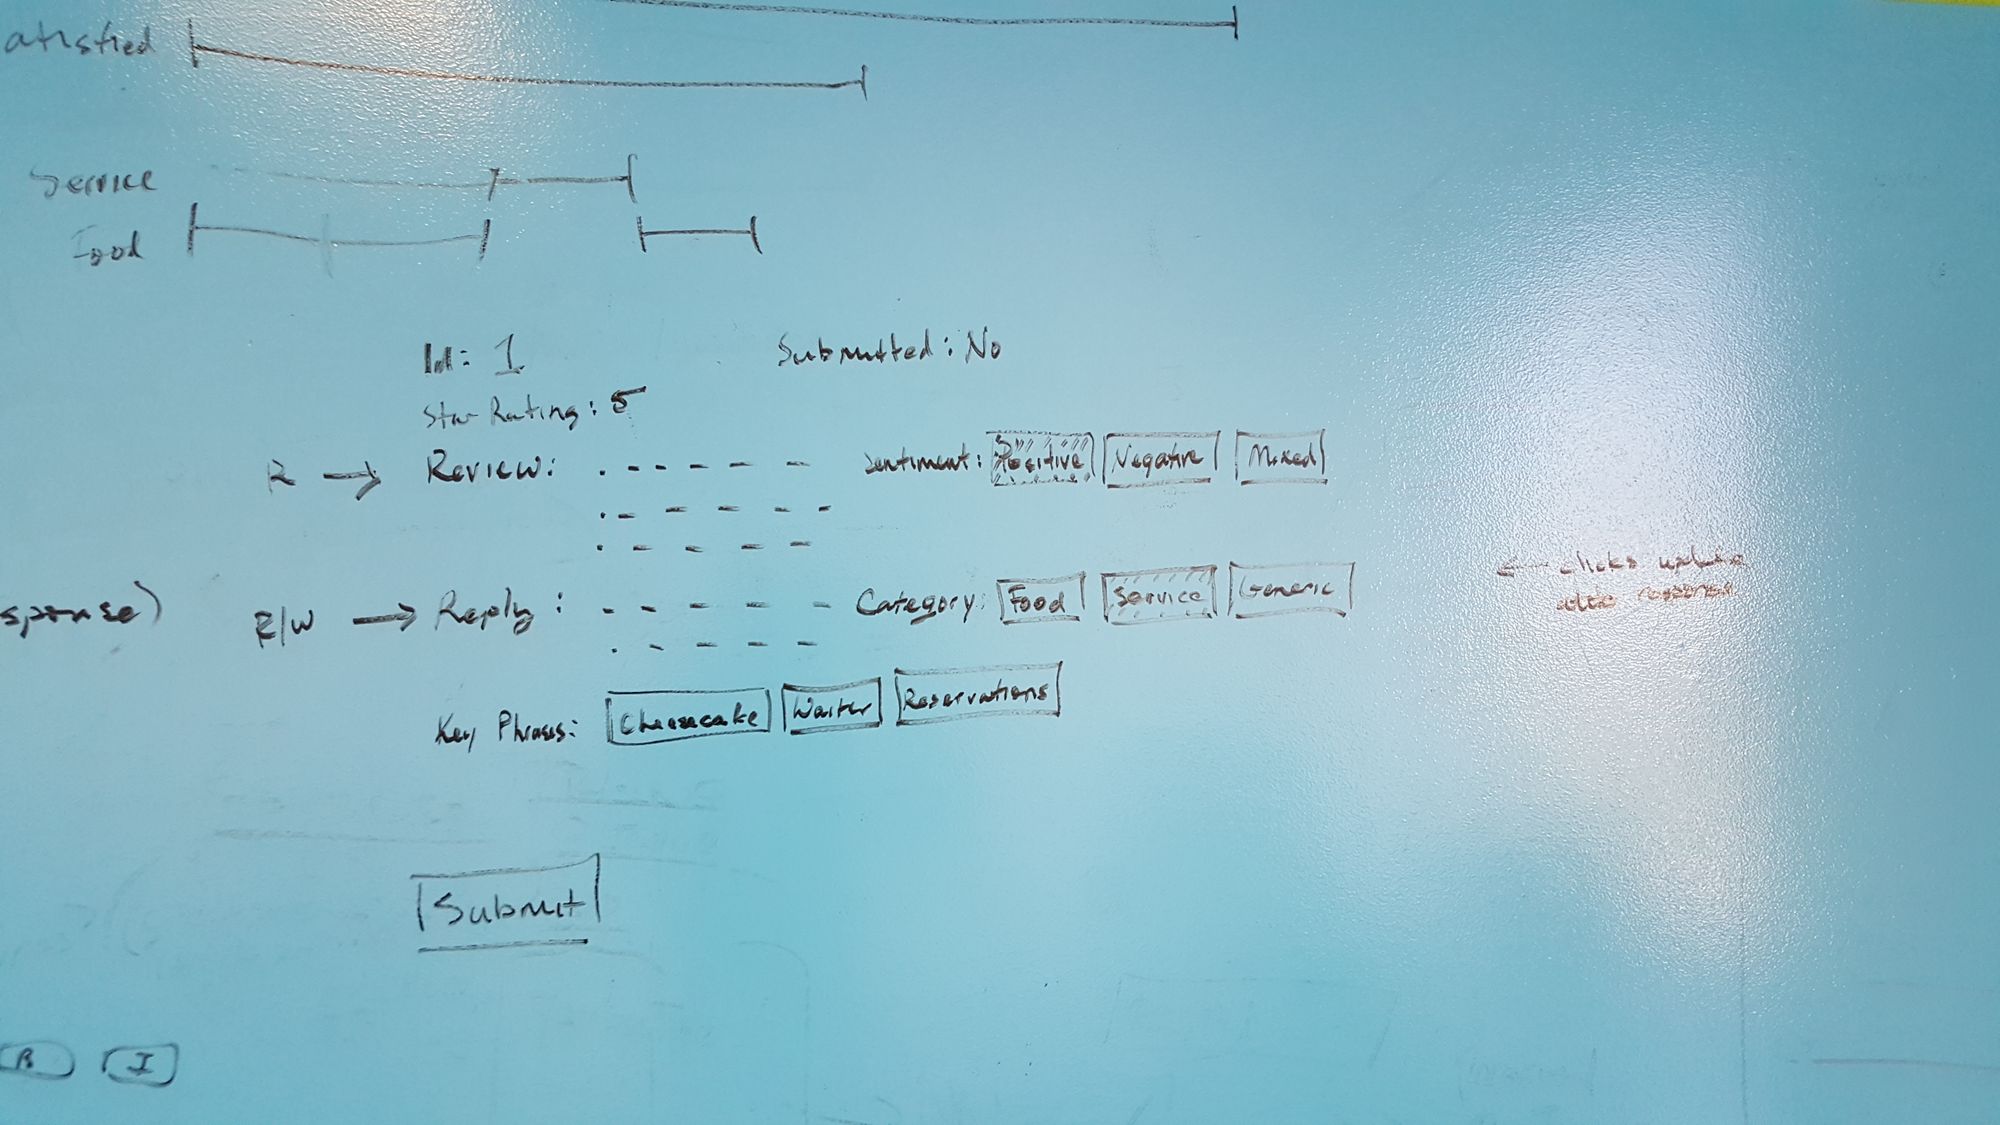 atisfied
Service
Food
Id: 1 Submitted: No
Star Rating: 5
R → Review: Sentiment: Positive Negative Mixed
← clicks update
response
sponse)
R/W → Reply: Category: Food Service Generic
Key Phrases: Cheesecake Waiter Reservations
Submit
B I